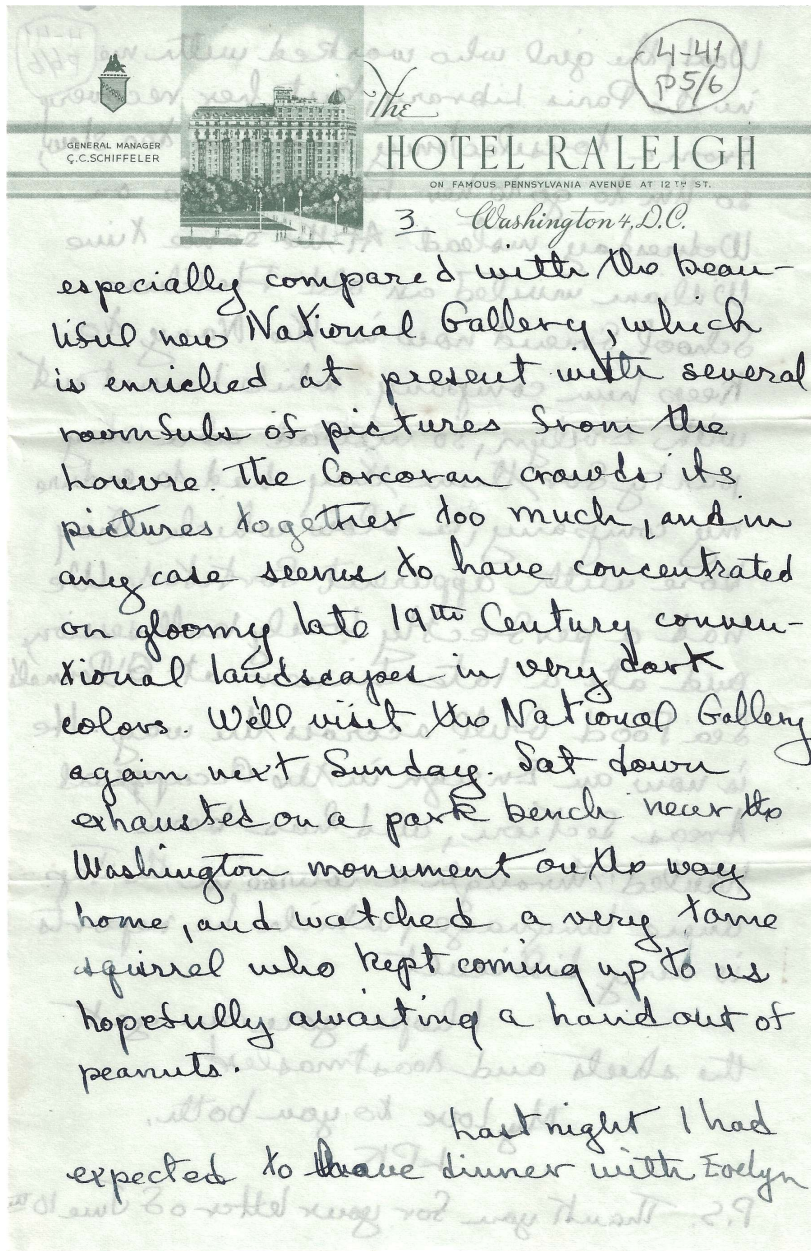 4-41
p5/6
The
HOTEL RALEIGH
GENERAL MANAGER
C.C.SCHIFFELER
ON FAMOUS PENNSYLVANIA AVENUE AT 12TH ST.
3
Washington 4, D.C.
especially compared with the beau-
tiful new National Gallery, which
is enriched at present with several
roomfuls of pictures from the
Louvre. The Corcoran crowds its
pictures together too much, and in
any case seems to have concentrated
on gloomy late 19th Century conven-
tional landscapes in very dark
colors. We'll visit the National Gallery
again next Sunday. Sat down
exhausted on a park bench near the
Washington monument on the way
home, and watched a very tame
squirrel who kept coming up to us
hopefully awaiting a hand out of
peanuts.
Last night I had
expected to have dinner with Evelyn